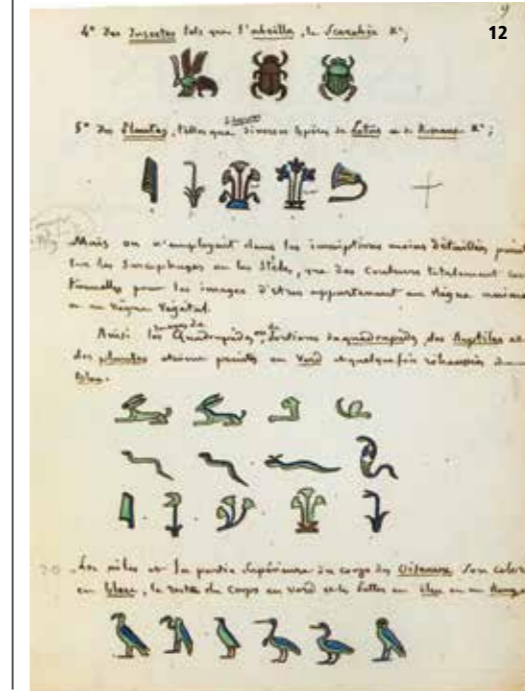 9
12
4° Des Insectes tels que l'abeille, le Scarabée &c;
5° Des Plantes, telles que diverses espèces de Lotus et de Roseaux &c;
Mais on n'employait dans les inscriptions moins détaillées peintes
sur les Sarcophages ou les Stèles, que des Couleurs totalement
pour les images d'êtres appartenant au règne animal
ou au règne végétal.
Ainsi les Quadrupèdes, ou portions de quadrupèdes, des Reptiles et
des plantes étaient peints en Verd et quelquefois rehaussés
bleu.
Les ailes et la partie supérieure du corps des Oiseaux
en bleu, le reste du Corps en verd et les pattes en bleu ou en Rouge